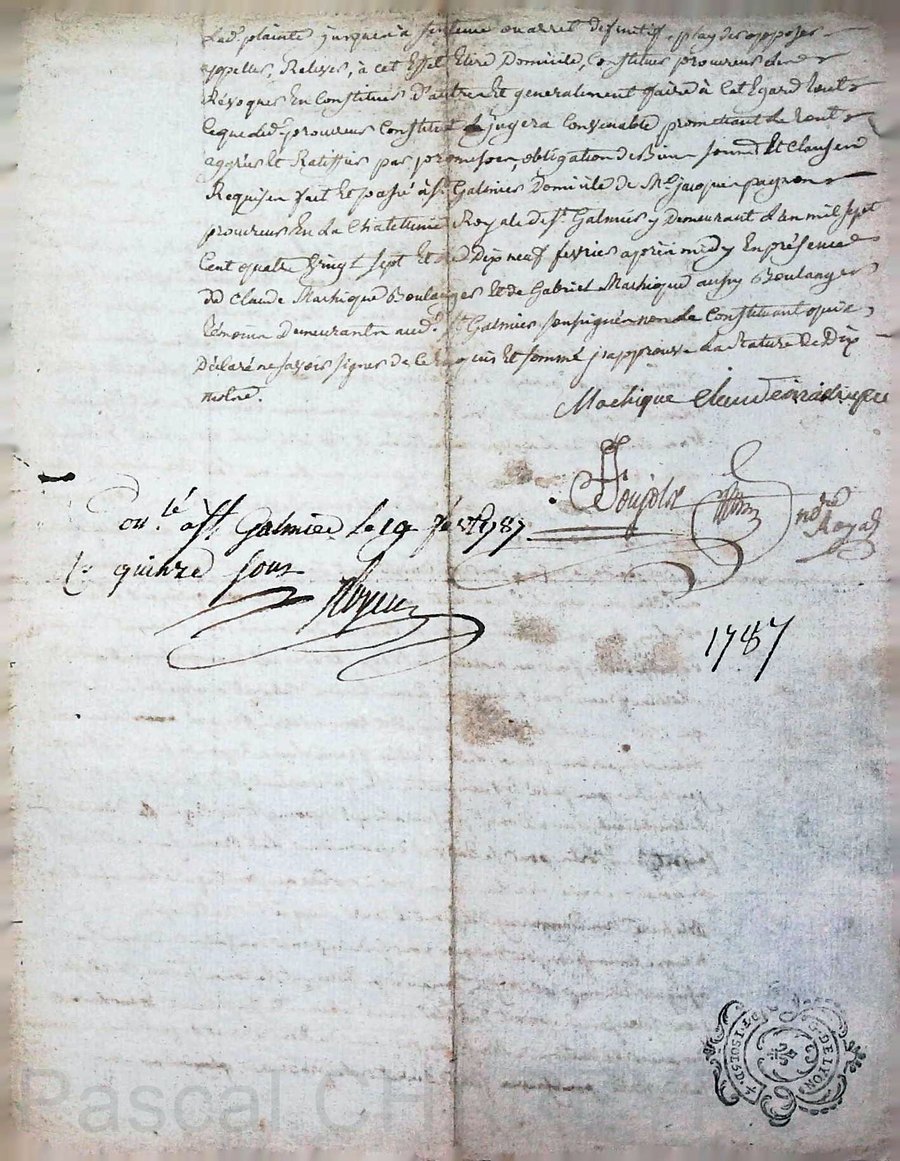 Lad. plainte jusques à sentence ou arret definitif, 
appeller, Relever, à cet Effet Elire Domicile, Constituer procureurs
Révoquer En Constituer d'autres Et generalement faire à Cet Egard tout
ceque led. procureur Constitué jugera Convenable, promettant de tout
aggréer Et Ratiffier par promesse, obligation de Biens soumis. Et Clauses
Requises fait Et passé à St. Galmier Domicile de Me. jacques
procureur En La Chatellenie Royale de St. Galmier y Demeurant L'an mil sept
Cent quatre Vingt sept Et Le Dix neuf fevrier aprés midy En présence
de Claude Machique Boulanger Et de Gabriel Machique aussy Boulanger
témoins Demeurants aud. St. Galmier soussignés non Le Constituant qui a
Déclaré ne savoir signer de ce Requis Et sommé j'approuve La Rature de Dix
mots
Machique Claude machique
nore Royal
Con.lé a St. Galmier Le 19 fév. 1787
R. quinze sous
1787
G. DE LYON